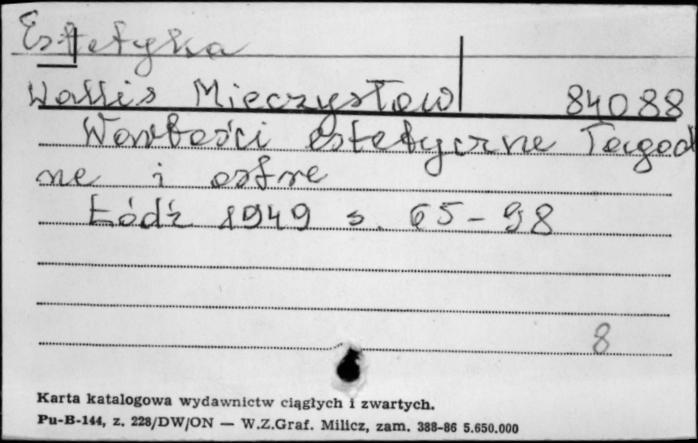 Estetyka
Wallis Mieczysław 84088
Wartości estetyczne łagod
ne i ostre
Łódź 1949 s. 65-98
8
Karta katalogowa wydawnictw ciągłych i zwartych.
Pu-B-144, z. 228/DW/ON — W.Z.Graf. Milicz, zam. 388-86 5.650.000